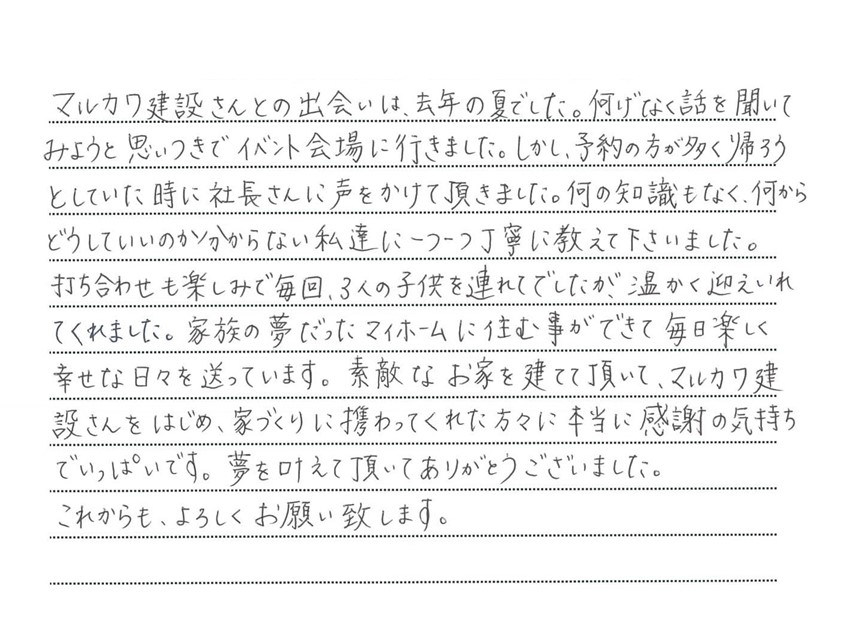 マルカワ建設さんとの出会いは、去年の夏でした。何げなく話を聞いて
みようと思いつきでイベント会場に行きました。しかし、予約の方が多く帰ろう
としていた時に社長さんに声をかけて頂きました。何の知識もなく、何から
どうしていいのか分からない私達に一つ一つ丁寧に教えて下さいました。
打ち合わせも楽しみで毎回、3人の子供を連れてでしたが、温かく迎えいれ
てくれました。家族の夢だったマイホームに住む事ができて毎日楽しく
幸せな日々を送っています。素敵なお家を建てて頂いて、マルカワ建
設さんをはじめ、家づくりに携わってくれた方々に本当に感謝の気持ち
でいっぱいです。夢を叶えて頂いてありがとうございました。
これからも、よろしくお願い致します。